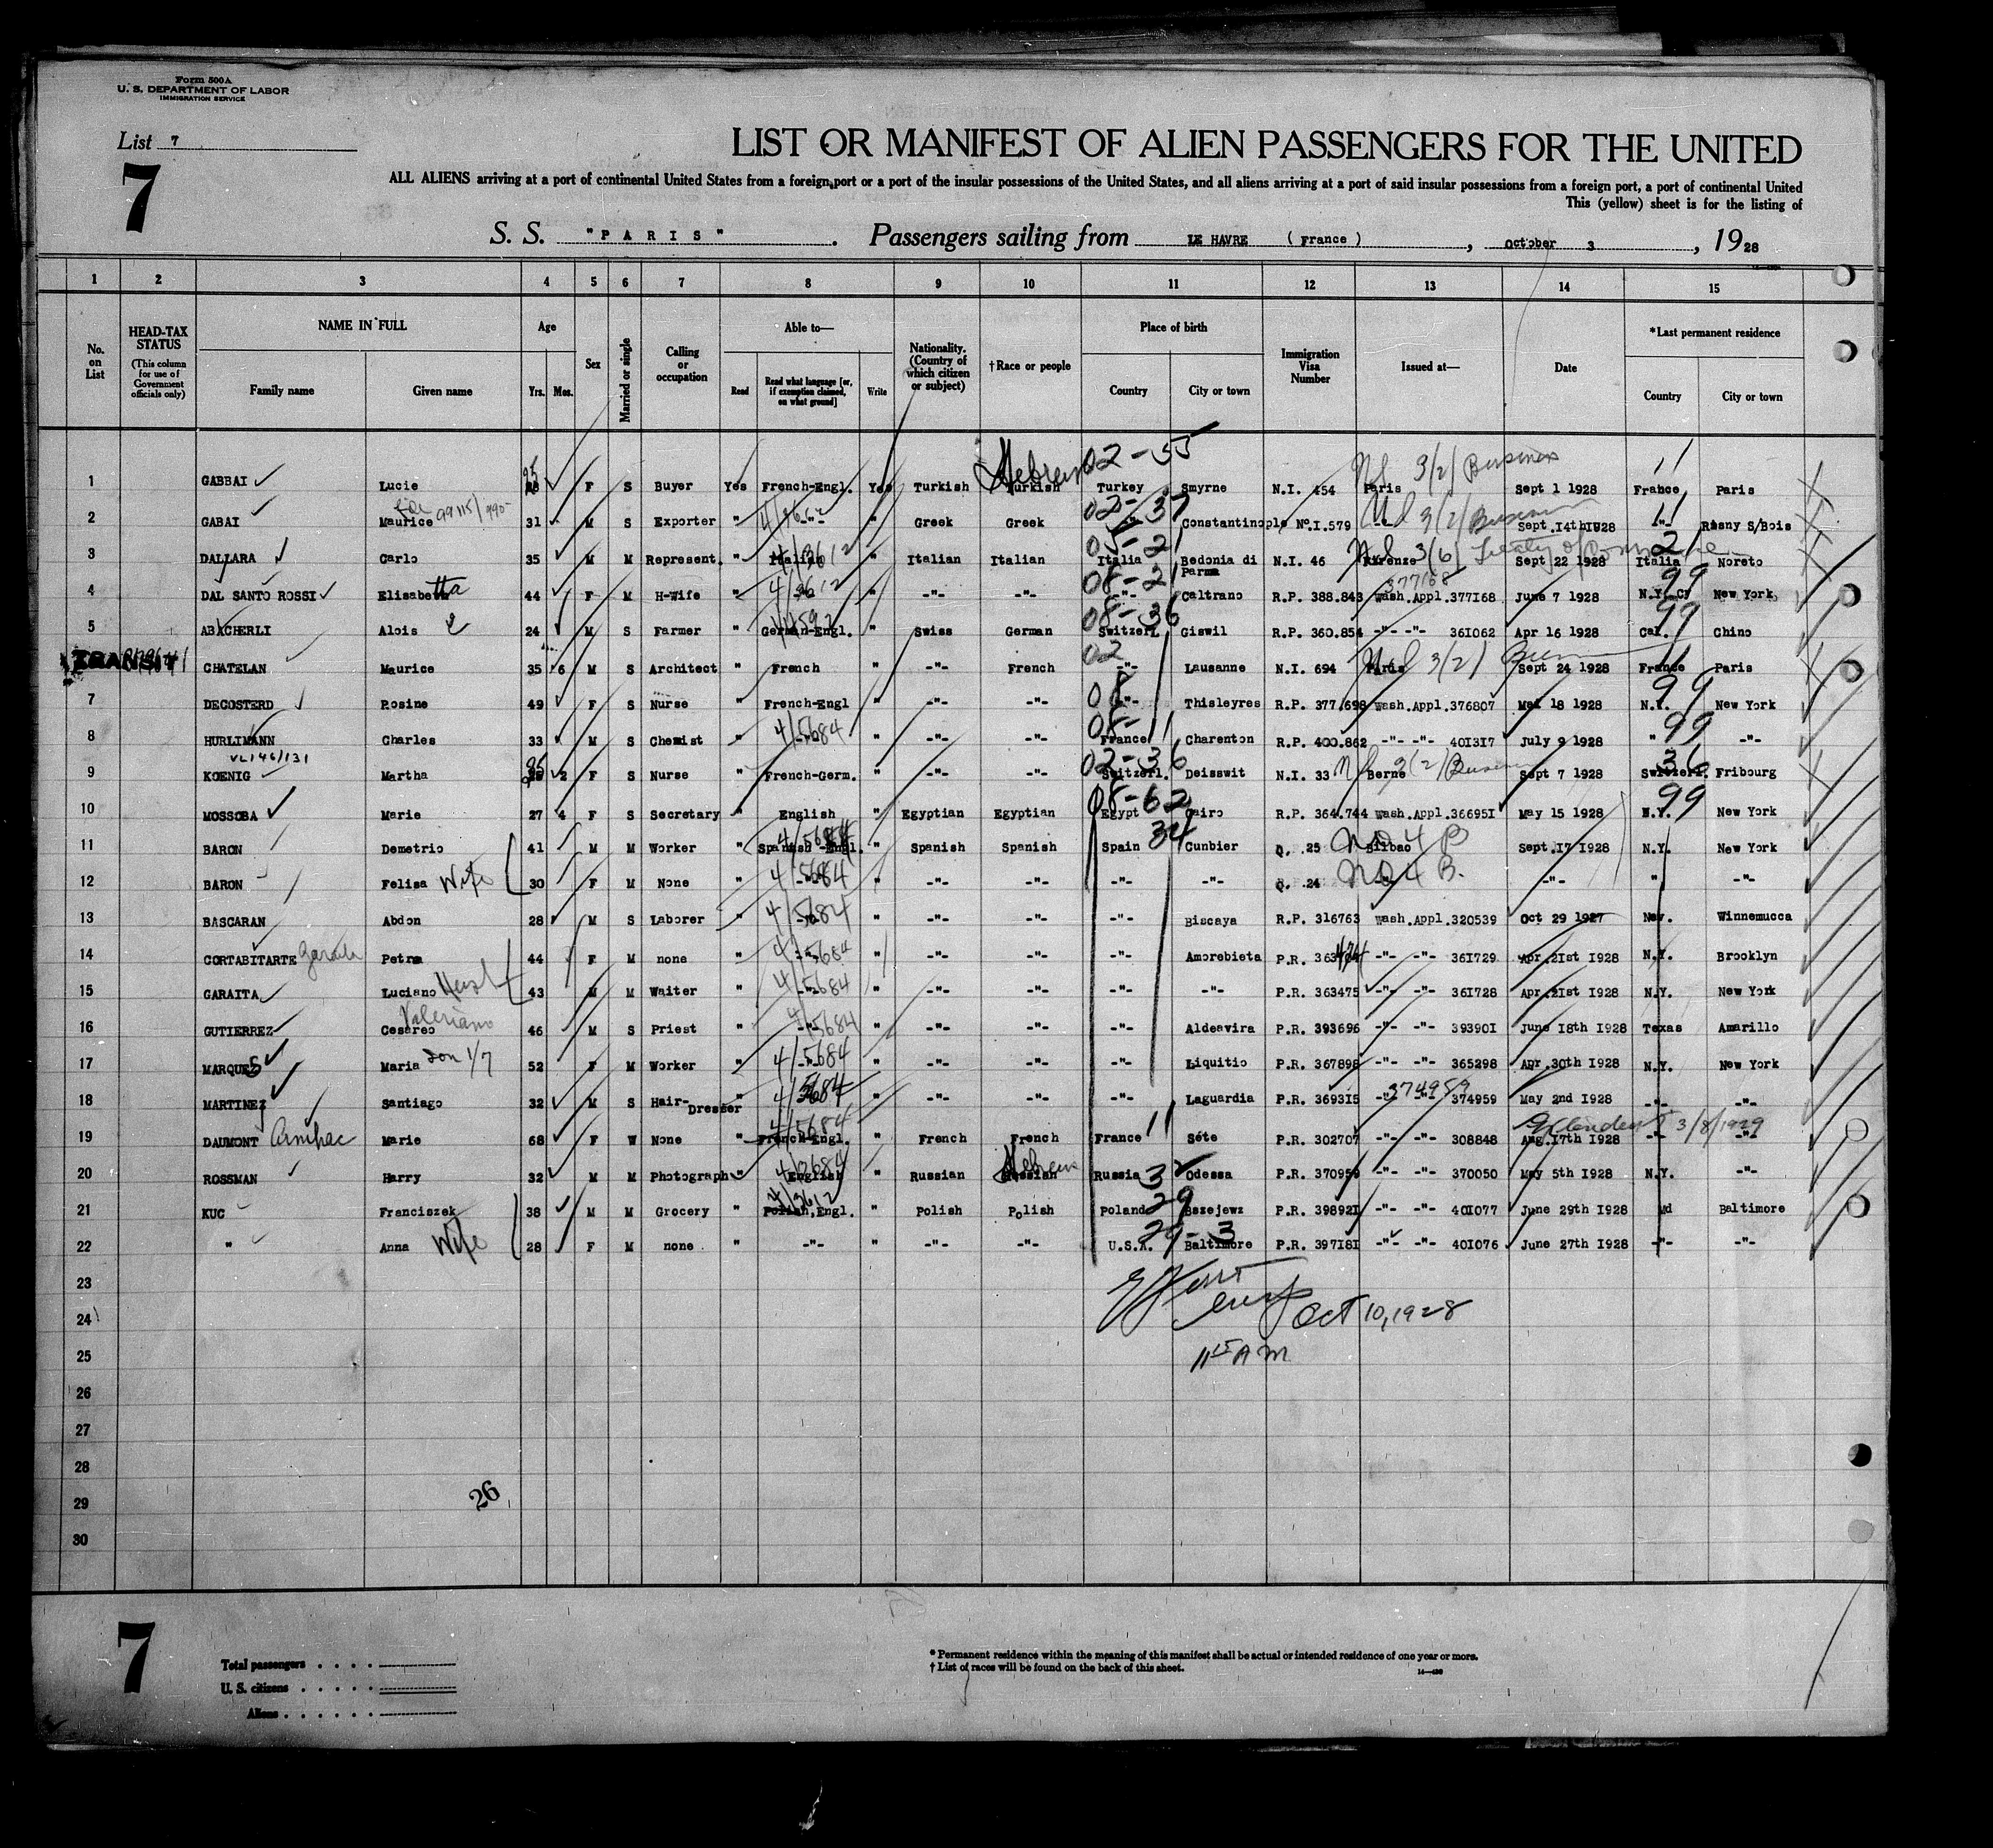 Form 500A
U. S. DEPARTMENT OF LABOR
IMMIGRATION SERVICE
List 7
7
LIST OR MANIFEST OF ALIEN PASSENGERS FOR THE UNITED
ALL ALIENS arriving at a port of continental United States from a foreign port or a port of the insular possessions of the United States, and all aliens arriving at a port of said insular possessions from a foreign port, a port of continental United
This (yellow) sheet is for the listing of
S. S. "PARIS". Passengers sailing from LE HAVRE (France), October 3, 1928
1 2 3 4 5 6 7 8 9 10 11 12 13 14 15
No. on List
HEAD-TAX STATUS (This column for use of Government officials only)
NAME IN FULL Family name Given name
Age Yrs. Mos.
Sex
Married or single
Calling or occupation
Able to— Read Read what language [or, if exemption claimed, on what ground] Write
Nationality. (Country of which citizen or subject)
†Race or people
Place of birth Country City or town
Immigration Visa Number
Issued at—
Date
*Last permanent residence Country City or town
1 GABBAI Lucie F S Buyer Yes French-Engl. Yes Turkish Turkish Hebrew 02-55 Turkey Smyrne N.I. 454 Paris 3/2/ Business Sept 1 1928 France 11 Paris
2 GABAI Maurice 31 M S Exporter " -"- " Greek Greek 02-37 Constantinople Nº.I.579 3/2/ Business Sept.14th1928 -"- 11 Rosny S/Bois
3 DALLARA Carlo 35 M M Represent. " Italian " Italian Italian Italia Bedonia di Parma N.I. 46 Firenze 3(6) Treaty of Commerce Sept 22 1928 Italia 21 Noreto
4 DAL SANTO ROSSI Elisabetta 44 F M H-Wife " " -"- -"- 08-21 -"- Caltrano R.P. 388.843 Wash.Appl.377168 377168 June 7 1928 N.Y. 99 New York
5 ABACHERLI Alois 24 M S Farmer " German-Engl. " Swiss German 08-36 Switzerl. Giswil R.P. 360.854 -"- -"- 361062 Apr 16 1928 Cal. 99 Chino
TRANSIT CHATELAN Maurice 35 6 M S Architect " French " -"- French 02 -"- Lausanne N.I. 694 Paris 3/2/ Sept 24 1928 France 11 Paris
7 DECOSTERD Rosine 49 F S Nurse " French-Engl " -"- -"- -"- Thisleyres R.P. 377.698 Wash.Appl.376807 Mai 18 1928 N.Y. 99 New York
8 HURLIMANN Charles 33 M S Chemist " -"- 4/5684 " -"- -"- 08-11 France Charenton R.P. 400.862 -"- -"- 401317 July 9 1928 " 99 -"-
VL146/131
9 KOENIG Martha 2 F S Nurse " French-Germ. " -"- -"- 02-36 Switzerl. Deisswit N.I. 33 Berne 3(2) Sept 7 1928 Switzerl. 36 Fribourg
10 MOSSOBA Marie 27 4 F S Secretary " English " Egyptian Egyptian 08-62 Egypt Cairo R.P. 364.744 Wash.Appl.366951 May 15 1928 N.Y. 99 New York
11 BARON Demetrio 41 M M Worker " Spanish -Engl. 4/5684 " Spanish Spanish Spain 34 Cunbier Q. 25 Bilbao Sept.17 1928 N.Y. New York
12 BARON Felisa Wife 30 F M None " 4/5684 " -"- -"- -"- -"- Q. 24 -"- " -"-
13 BASCARAN Abdon 28 M S Laborer " 4/5684 " -"- -"- -"- Biscaya R.P. 316763 Wash.Appl.320539 Oct 29 1927 Nev. Winnemucca
14 CORTABITARTE Petra 44 F M none " 4/5684 " -"- -"- -"- Amorebieta P.R. -"- -"- 361729 Apr.21st 1928 N.Y. Brooklyn
15 GARAITA Luciano 43 M M Waiter " 4/5684 " -"- -"- -"- -"- P.R. 363475 -"- -"- 361728 Apr.21st 1928 N.Y. New York
16 GUTIERREZ Cesareo Valeriano 46 M S Priest " 4/5684 " -"- -"- -"- Aldeavira P.R. 393696 -"- -"- 393901 June 18th 1928 Texas Amarillo
17 MARQUES Maria 52 F M Worker " 4/5684 " -"- -"- -"- Liquitio P.R. 367898 -"- -"- 365298 Apr.30th 1928 N.Y. New York
18 MARTINEZ Santiago 32 M S Hair-Dresser " 4/5684 " -"- -"- -"- Laguardia P.R. 369315 374959 -"- -"- 374959 May 2nd 1928 -"- -"-
19 DAUMONT Marie 68 F W None " French-Engl. 4/5684 " French French France 11 Séte P.R. 302707 -"- -"- 308848 Aug.17th 1928 3/8/1929 -"- -"-
20 ROSSMAN Harry 32 M M Photograph " English " Russian Russian Hebrew Russia 32 Odessa P.R. 370959 -"- -"- 370050 May 5th 1928 N.Y. -"-
21 KUC Franciszek 38 M M Grocery " Polish,Engl. 4/3612 " Polish Polish Poland 29 Bszejewz P.R. 398921 -"- -"- 401077 June 29th 1928 Md Baltimore
22 " Anna Wife 28 F M none " -"- " -"- -"- U.S.A. 29-3 Baltimore P.R. 397181 -"- -"- 401076 June 27th 1928 -"- -"-
23
24 Oct 10, 1928
25 11 15 AM
26
27
28
29 26
30
7
Total passengers
U. S. citizens
Aliens
* Permanent residence within the meaning of this manifest shall be actual or intended residence of one year or more.
† List of races will be found on the back of this sheet.